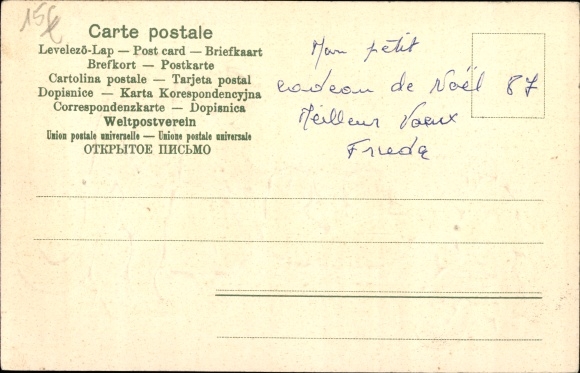 15€
Carte postale
Levelező-Lap — Post card — Briefkaart
Brefkort — Postkarte
Cartolina postale — Tarjeta postal
Dopisnice — Karta Korespondencyjna
Correspondenzkarte — Dopisnica
Weltpostverein
Union postale universelle — Unione postale universale
ОТКРЫТОЕ ПИСЬМО
Mon petit
cadeau de Noël 87
Meilleur Voeux
Frieda